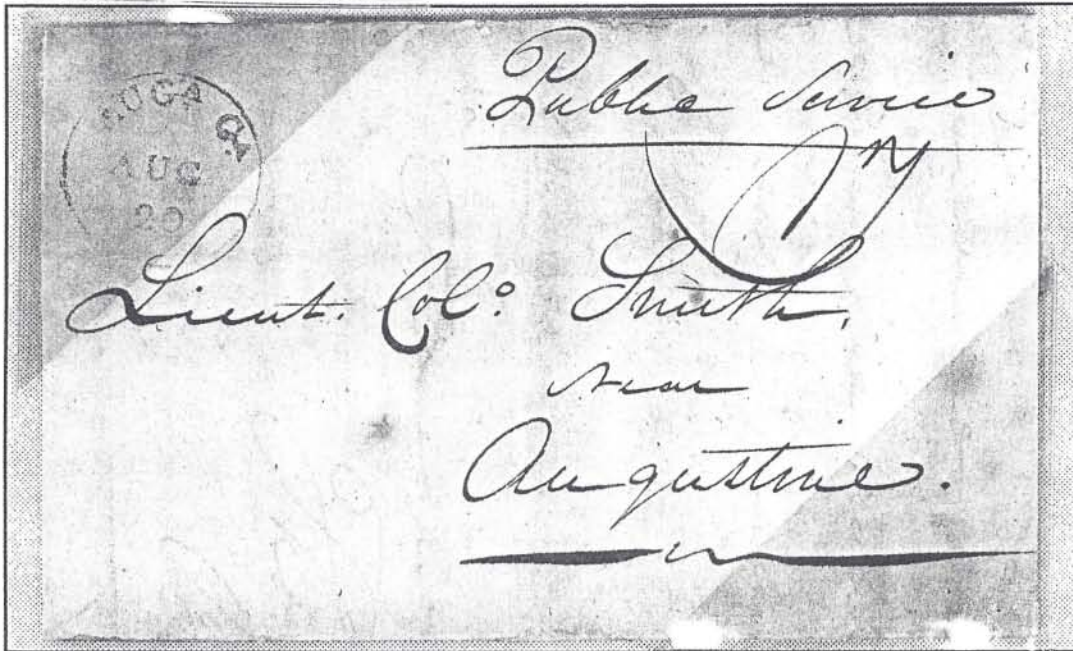 AUGA Ga.
AUG
20
Public Service
Lieut. Colo. Smith,
Near
Augustine.